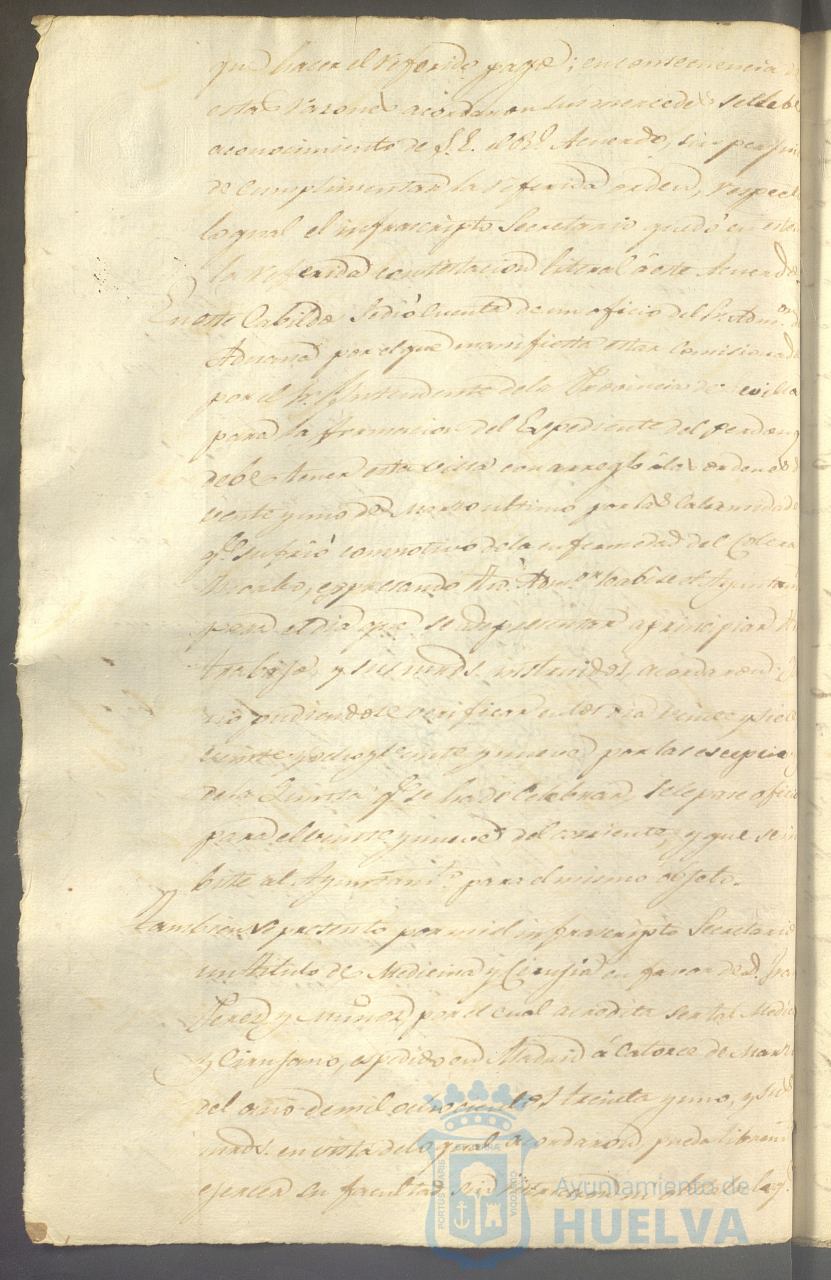 que hacer el referido page; en consecuencia de
estas razones acordaron sus mercedes se lleve
a conocimiento de S. E. el Rl. Acuerdo, sin perjui
de cumplimentar la referida orden, respect
lo qual el infrascripto Secretario quedó en
la referida contestacion literal á este Acuerdo
En este Cabildo se dió cuenta de un oficio del Sr. Admor. de
Aduana por el que manifiesta estar comisionad
por el Sr. Yntendente de la Provincia de Sevilla
para la formacion del Espediente del perdon q
debe tener esta villa con arreglo á las ordenes d
veinte y uno de Marzo ultimo por las calamidades
qe. sufrió con motivo de la enfermedad del Colera
Morbo, espresando dho. Admor. se abise al Ayuntam
para el dia que se ha de presentar a principiar
trabajo, y sus mrds. instruidos, acordaron
no pudiendose verificar en los dias veinte y siete
veinte y ocho y veinte y nueve por las escepcio
de la Quinta qe. se ha de celebrar, se le pase oficio
para el veinte y nueve del corriente, y que se in
bite al Ayuntamto. para el mismo objeto.
Tambien se presentó por mi el infrascripto Secretario
un titulo de Medicina y Cirujia en favor de D.
Perez y Muñoz, por el cual acredita ser tal Medico
y Cirujano, espedido en Madrid á catorce de Marzo
del año de mil ochocientos treinta y uno, y sus
mrds. en vista de lo qual acordaron pueda librem
ejercer su facultad sin
PORTUS MARIS
ET TERRAE
CUSTODIA
Ayuntamiento de
HUELVA